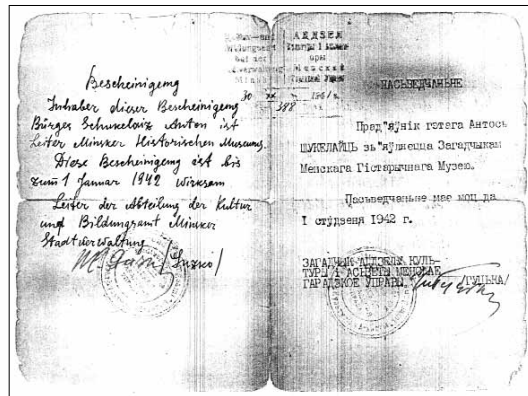 Bescheinigung
Inhaber dieser Bescheinigung
Bürger Schukeloiz Anton ist
Leiter Minsker Historischen Museums.
Diese Bescheinigung ist bis
zum 1 Januar 1942 wirksam
Leiter der Abteilung der Kultur
und Bildungsamt Minsker
Stadtverwaltung
АДДЗЕЛ
388
НАСЬВЕДЧАНЬНЕ
Прад"яўнік гэтага Антось
ШУКЕЛАЙЦЬ зь"яўляецца Загадчыкам
Менскага Гістарычнага Музею.
Пасьведчаньне мае моц да
I студзеня 1942 г.
ЗАГАДЧЫК АДДЗЕЛУ КУЛЬ-
ТУРЫ І АСЬВЕТЫ МЕНСКАЕ
ГАРАДЗКОЕ УПРАВЫ /ГУЦЬКА/